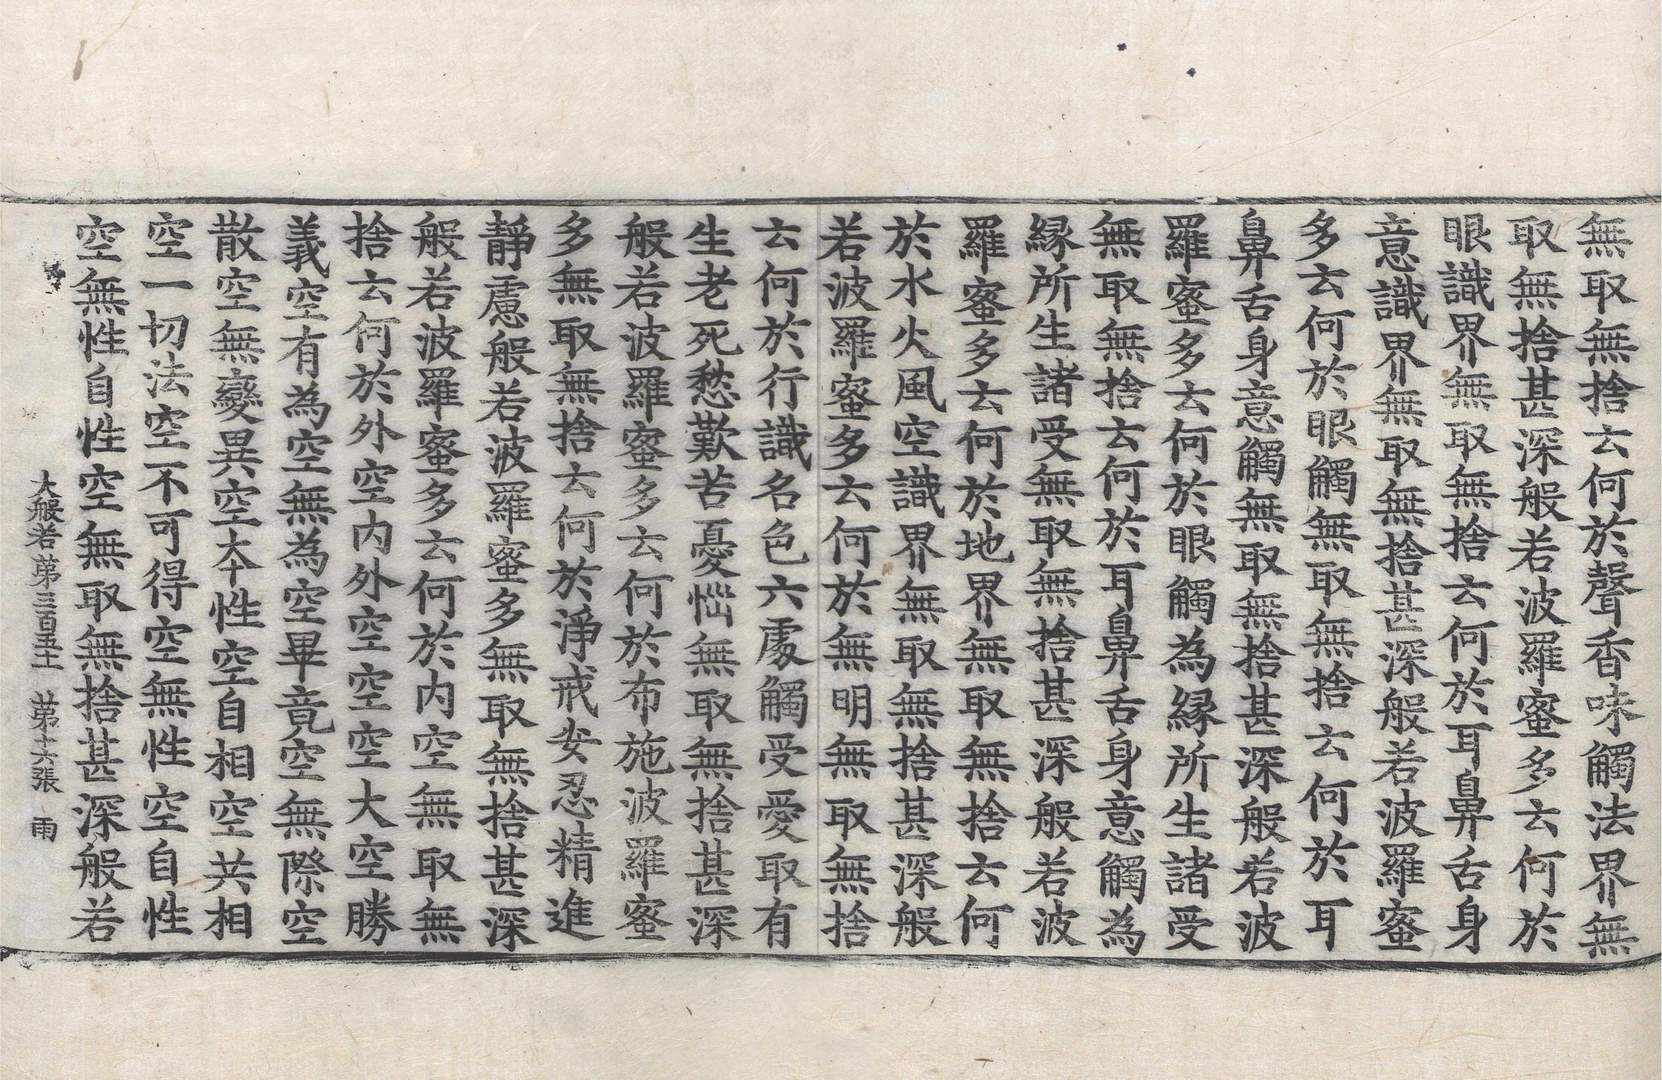 無取無捨云何於聲香味觸法界無
取無捨甚深般若波羅蜜多云何於
眼識界無取無捨云何於耳鼻舌身
意識界無取無捨甚深般若波羅蜜
多云何於眼觸無取無捨云何於耳
鼻舌身意觸無取無捨甚深般若波
羅蜜多云何於眼觸為緣所生諸受
無取無捨云何於耳鼻舌身意觸為
緣所生諸受無取無捨甚深般若波
羅蜜多云何於地界無取無捨云何
於水火風空識界無取無捨甚深般
若波羅蜜多云何於無明無取無捨
云何於行識名色六處觸受愛取有
生老死愁歎苦憂惱無取無捨甚深
般若波羅蜜多云何於布施波羅蜜
多無取無捨云何於淨戒安忍精進
靜慮般若波羅蜜多無取無捨甚深
般若波羅蜜多云何於內空無取無
捨云何於外空內外空空空大空勝
義空有為空無為空畢竟空無際空
散空無變異空本性空自相空共相
空一切法空不可得空無性空自性
空無性自性空無取無捨甚深般若
大般若第三百五十 第十六張 雨